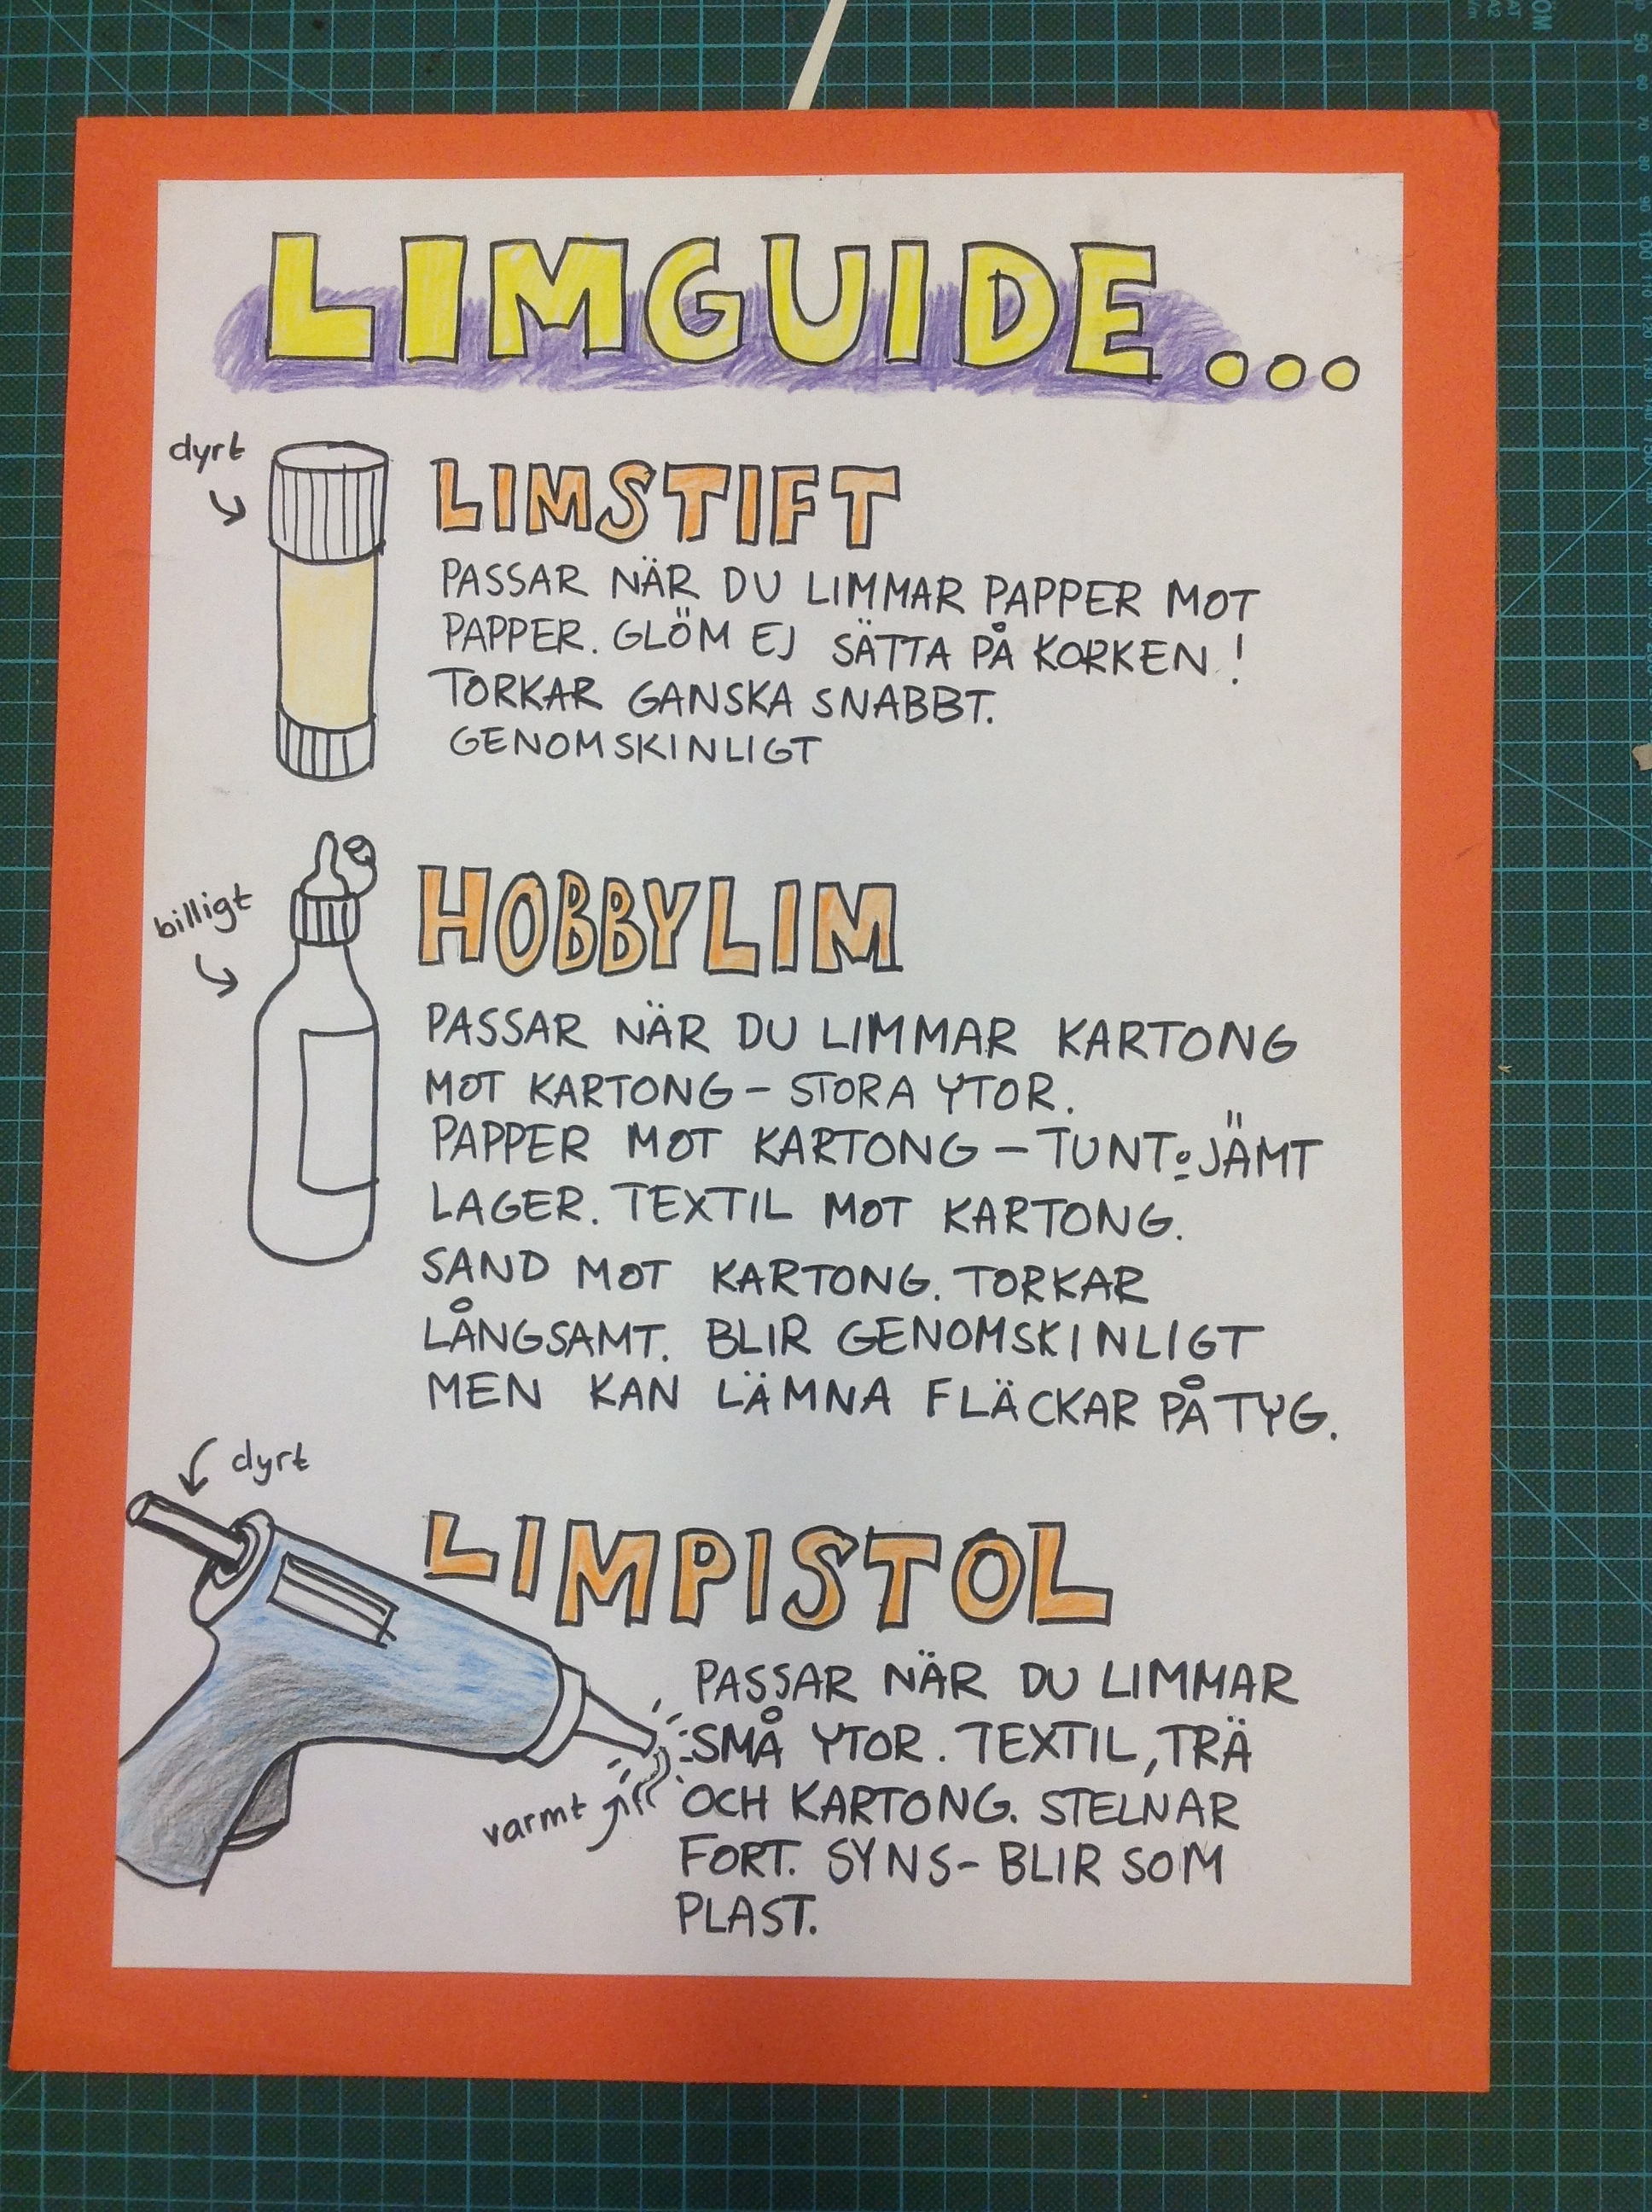 LIMGUIDE...
dyrt
LIMSTIFT
PASSAR NÄR DU LIMMAR PAPPER MOT
PAPPER. GLÖM EJ SÄTTA PÅ KORKEN!
TORKAR GANSKA SNABBT.
GENOMSKINLIGT
billigt
HOBBYLIM
PASSAR NÄR DU LIMMAR KARTONG
MOT KARTONG - STORA YTOR.
PAPPER MOT KARTONG - TUNT o JÄMT
LAGER. TEXTIL MOT KARTONG.
SAND MOT KARTONG. TORKAR
LÅNGSAMT. BLIR GENOMSKINLIGT
MEN KAN LÄMNA FLÄCKAR PÅ TYG.
dyrt
LIMPISTOL
PASSAR NÄR DU LIMMAR
SMÅ YTOR. TEXTIL, TRÄ
OCH KARTONG. STELNAR
FORT. SYNS - BLIR SOM
PLAST.
varmt